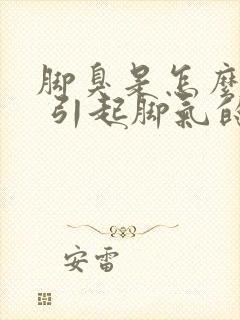 脚臭是怎麼
引起脚氣的
安雷